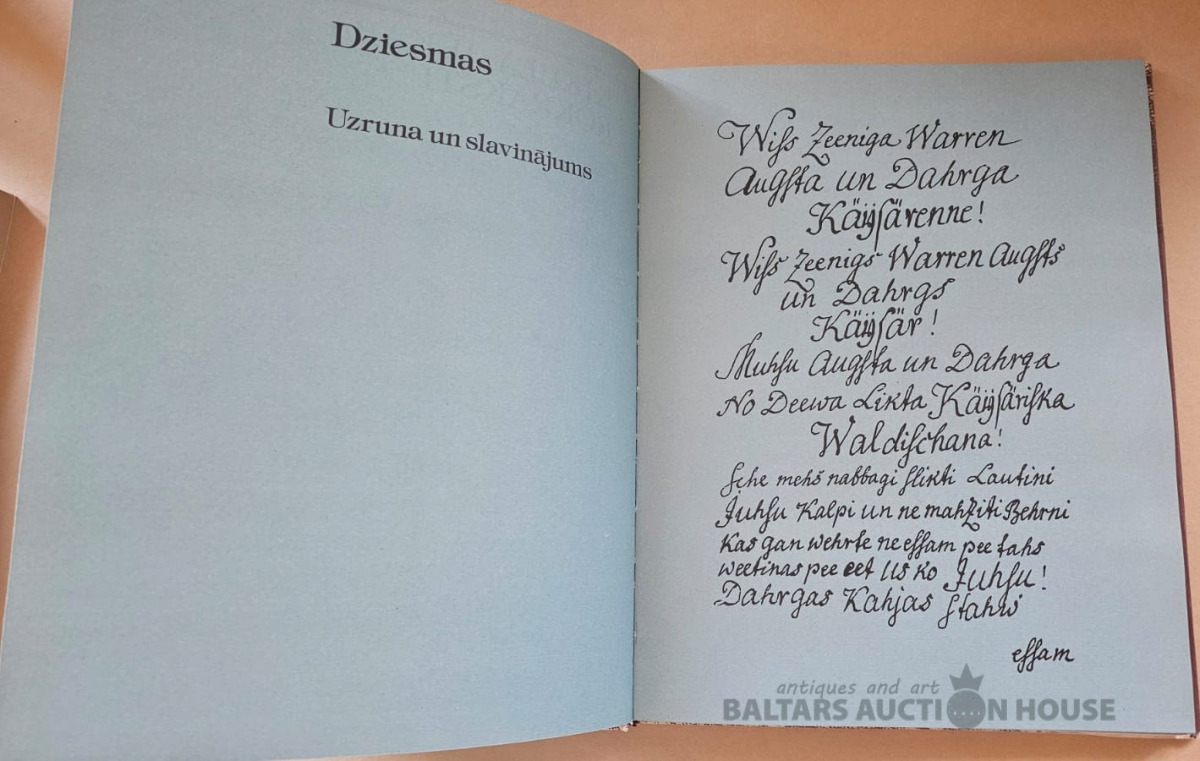 Dziesmas
Uzruna un slavinājums
Wiſs Zeeniga Warren
Augſta un Dahrga
Käÿſärenne!
Wiſs Zeenigs Warren Augſts
un Dahrgs
Käÿſär!
Muhſu Augſta un Dahrga
No Deewa Likta Käÿſäriſka
Waldiſchana!
ſche mehs nabbagi ſlikti Lautini
Juhſu Kalpi un ne mahziti Behrni
Kas gan wehrte ne eſſam pee tahs
weetinas pee eet Us ko Juhſu!
Dahrgas Kahjas ſtahw
eſſam
antiques and art
BALTARS AUCTION HOUSE